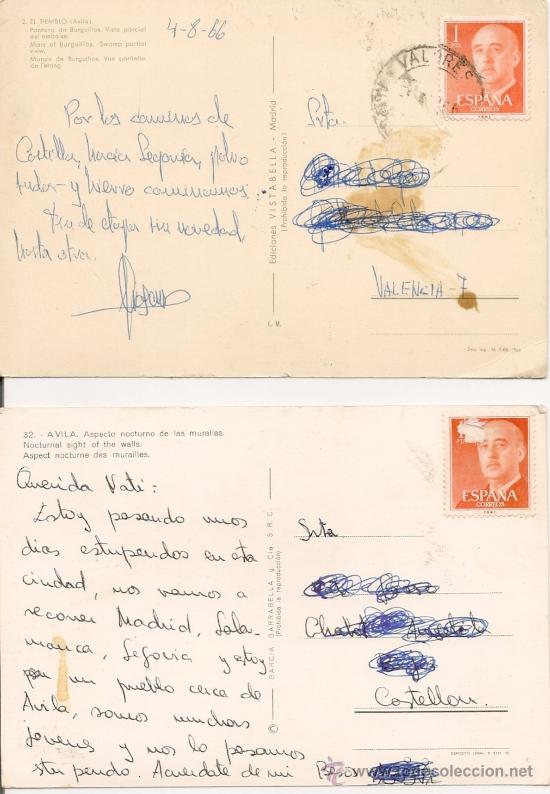 2. EL TIEMBLO (Avila)
Pantano de Burguillos. Vista parcial
del embalse.
Mars of Burguillos. Swamp partial
view.
Marais de Burguillos. Vue partielle
de l'étang.
4-8-66
Por los caminos de
Castilla, hacia Segovia, polvo
sudor y hierro caminamos
Fin de etapa sin novedad
hasta otra.
Ediciones VISTABELLA - Madrid
(Prohibida la reproducción)
L. M.
1
PTA
ESPAÑA
CORREOS
Srta.
VALENCIA-7
32. - AVILA. Aspecto nocturno de las murallas.
Nocturnal sight of the walls.
Aspect nocturne des murailles.
Querida Nati:
Estoy pasando unos
días estupendos en esta
ciudad, nos vamos a
recorrer Madrid, Sala-
manca, Segovia y estoy
en un pueblo cerca de
Avila, somos muchos
jovenes y nos lo pasamos
estupendo. Acuerdate de mi Besos
© GARCIA GARRABELLA y Cía. S.R.C.
(Prohibida la reproducción)
PTA
ESPAÑA
CORREOS
Srta
Castellon.
todocoleccion.net